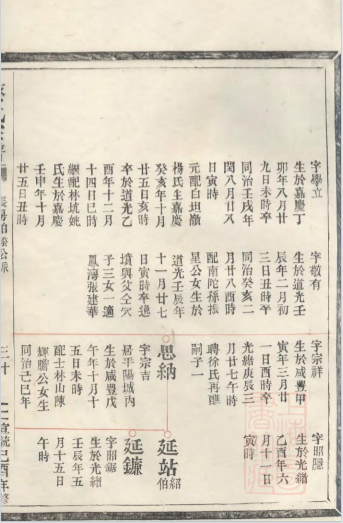 字學立
生於嘉慶丁
卯年八月廿
九日未時卒
同治壬戌年
閏八月廿八
日寅時
元配白坦墩
楊氏生嘉慶
癸亥年十月
廿五日亥時
卒於道光乙
酉年十二月
十四日巳時
繼配林坑姚
氏生於嘉慶
壬申年十月
廿五日丑時
字敬有
生於道光壬
辰年二月初
三日丑時卒
同治癸亥二
月廿八酉時
配南陀孫振
呈公女生於
道光壬辰年
十一月廿七
日寅時卒
墳與父仝穴
子三女一適
鳳濤張建華
字宗祥
生於咸豐甲
寅年三月廿
一日酉時卒
光緒庚辰三
月廿七午時
聘徐氏再醮
嗣子一
思納
字宗吉
居平陽城內
生於咸豐戊
午年十月十
五日未時
配士林山陳
輝膽公女生
同治己巳年
字昭隱
生於光緒
乙酉年六
月十一日
寅時
延站
紹伯
延鐮
字昭鋸
生於光緒
壬辰年五
月十五日
午時
長房伯公派
三十
宣統己酉年修